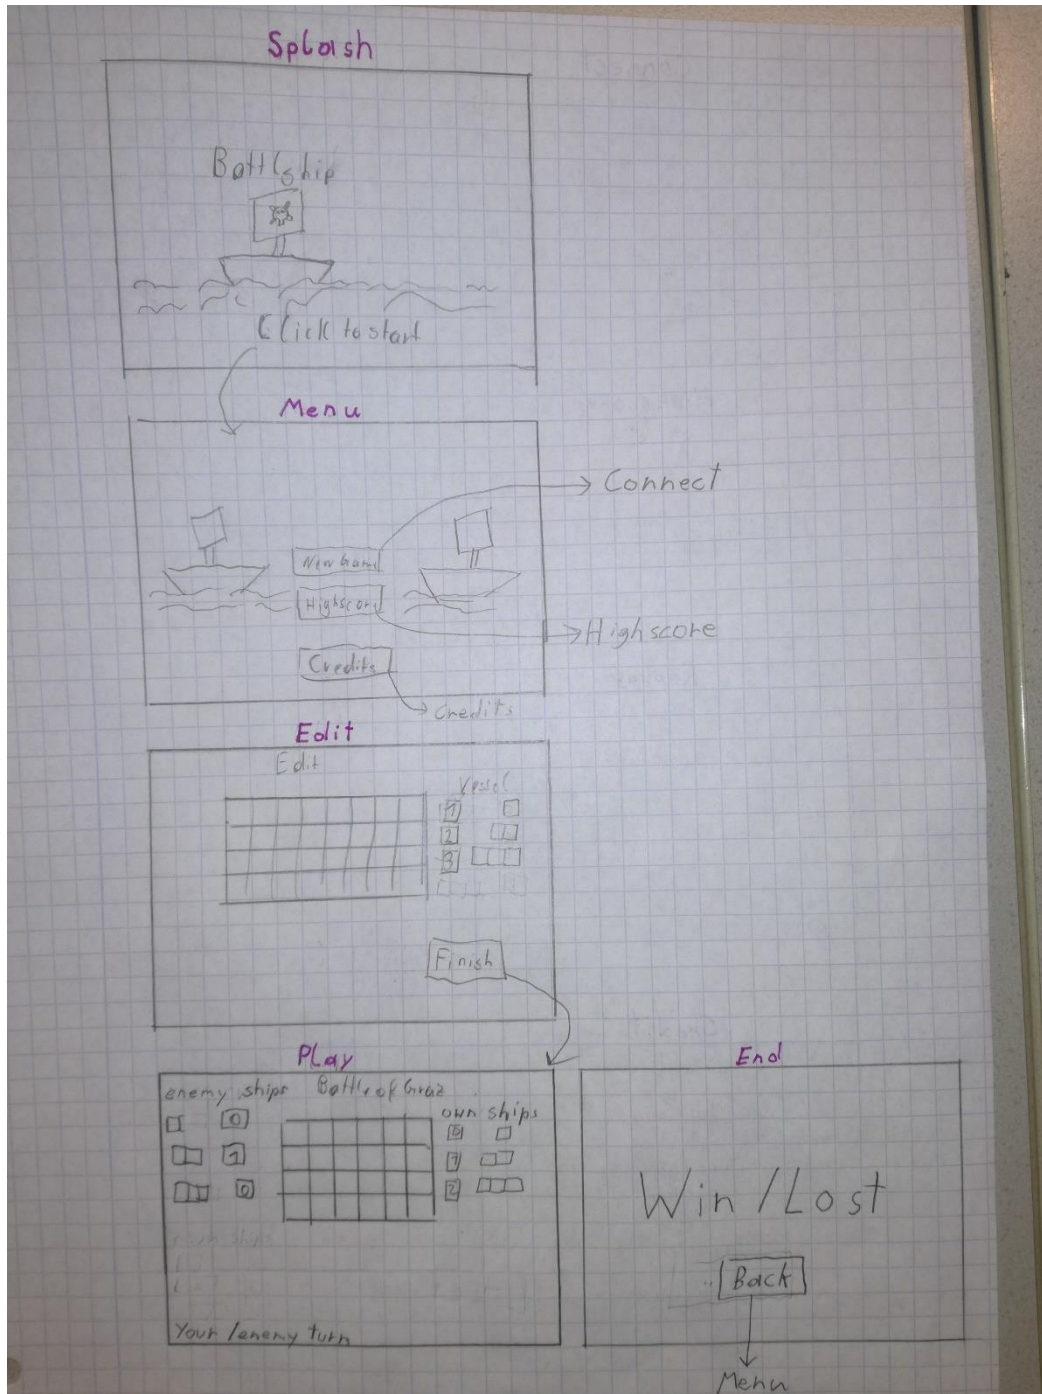 Splash
Battleship
Click to start
Menu
Connect
New Game
Highscore
Highscore
Credits
Credits
Edit
Edit
Vessel
1
2
3
Finish
Play
enemy ships
Battle of Graz
own ships
0
1
0
0
1
2
Your/enemy turn
End
Win/Lost
Back
Menu